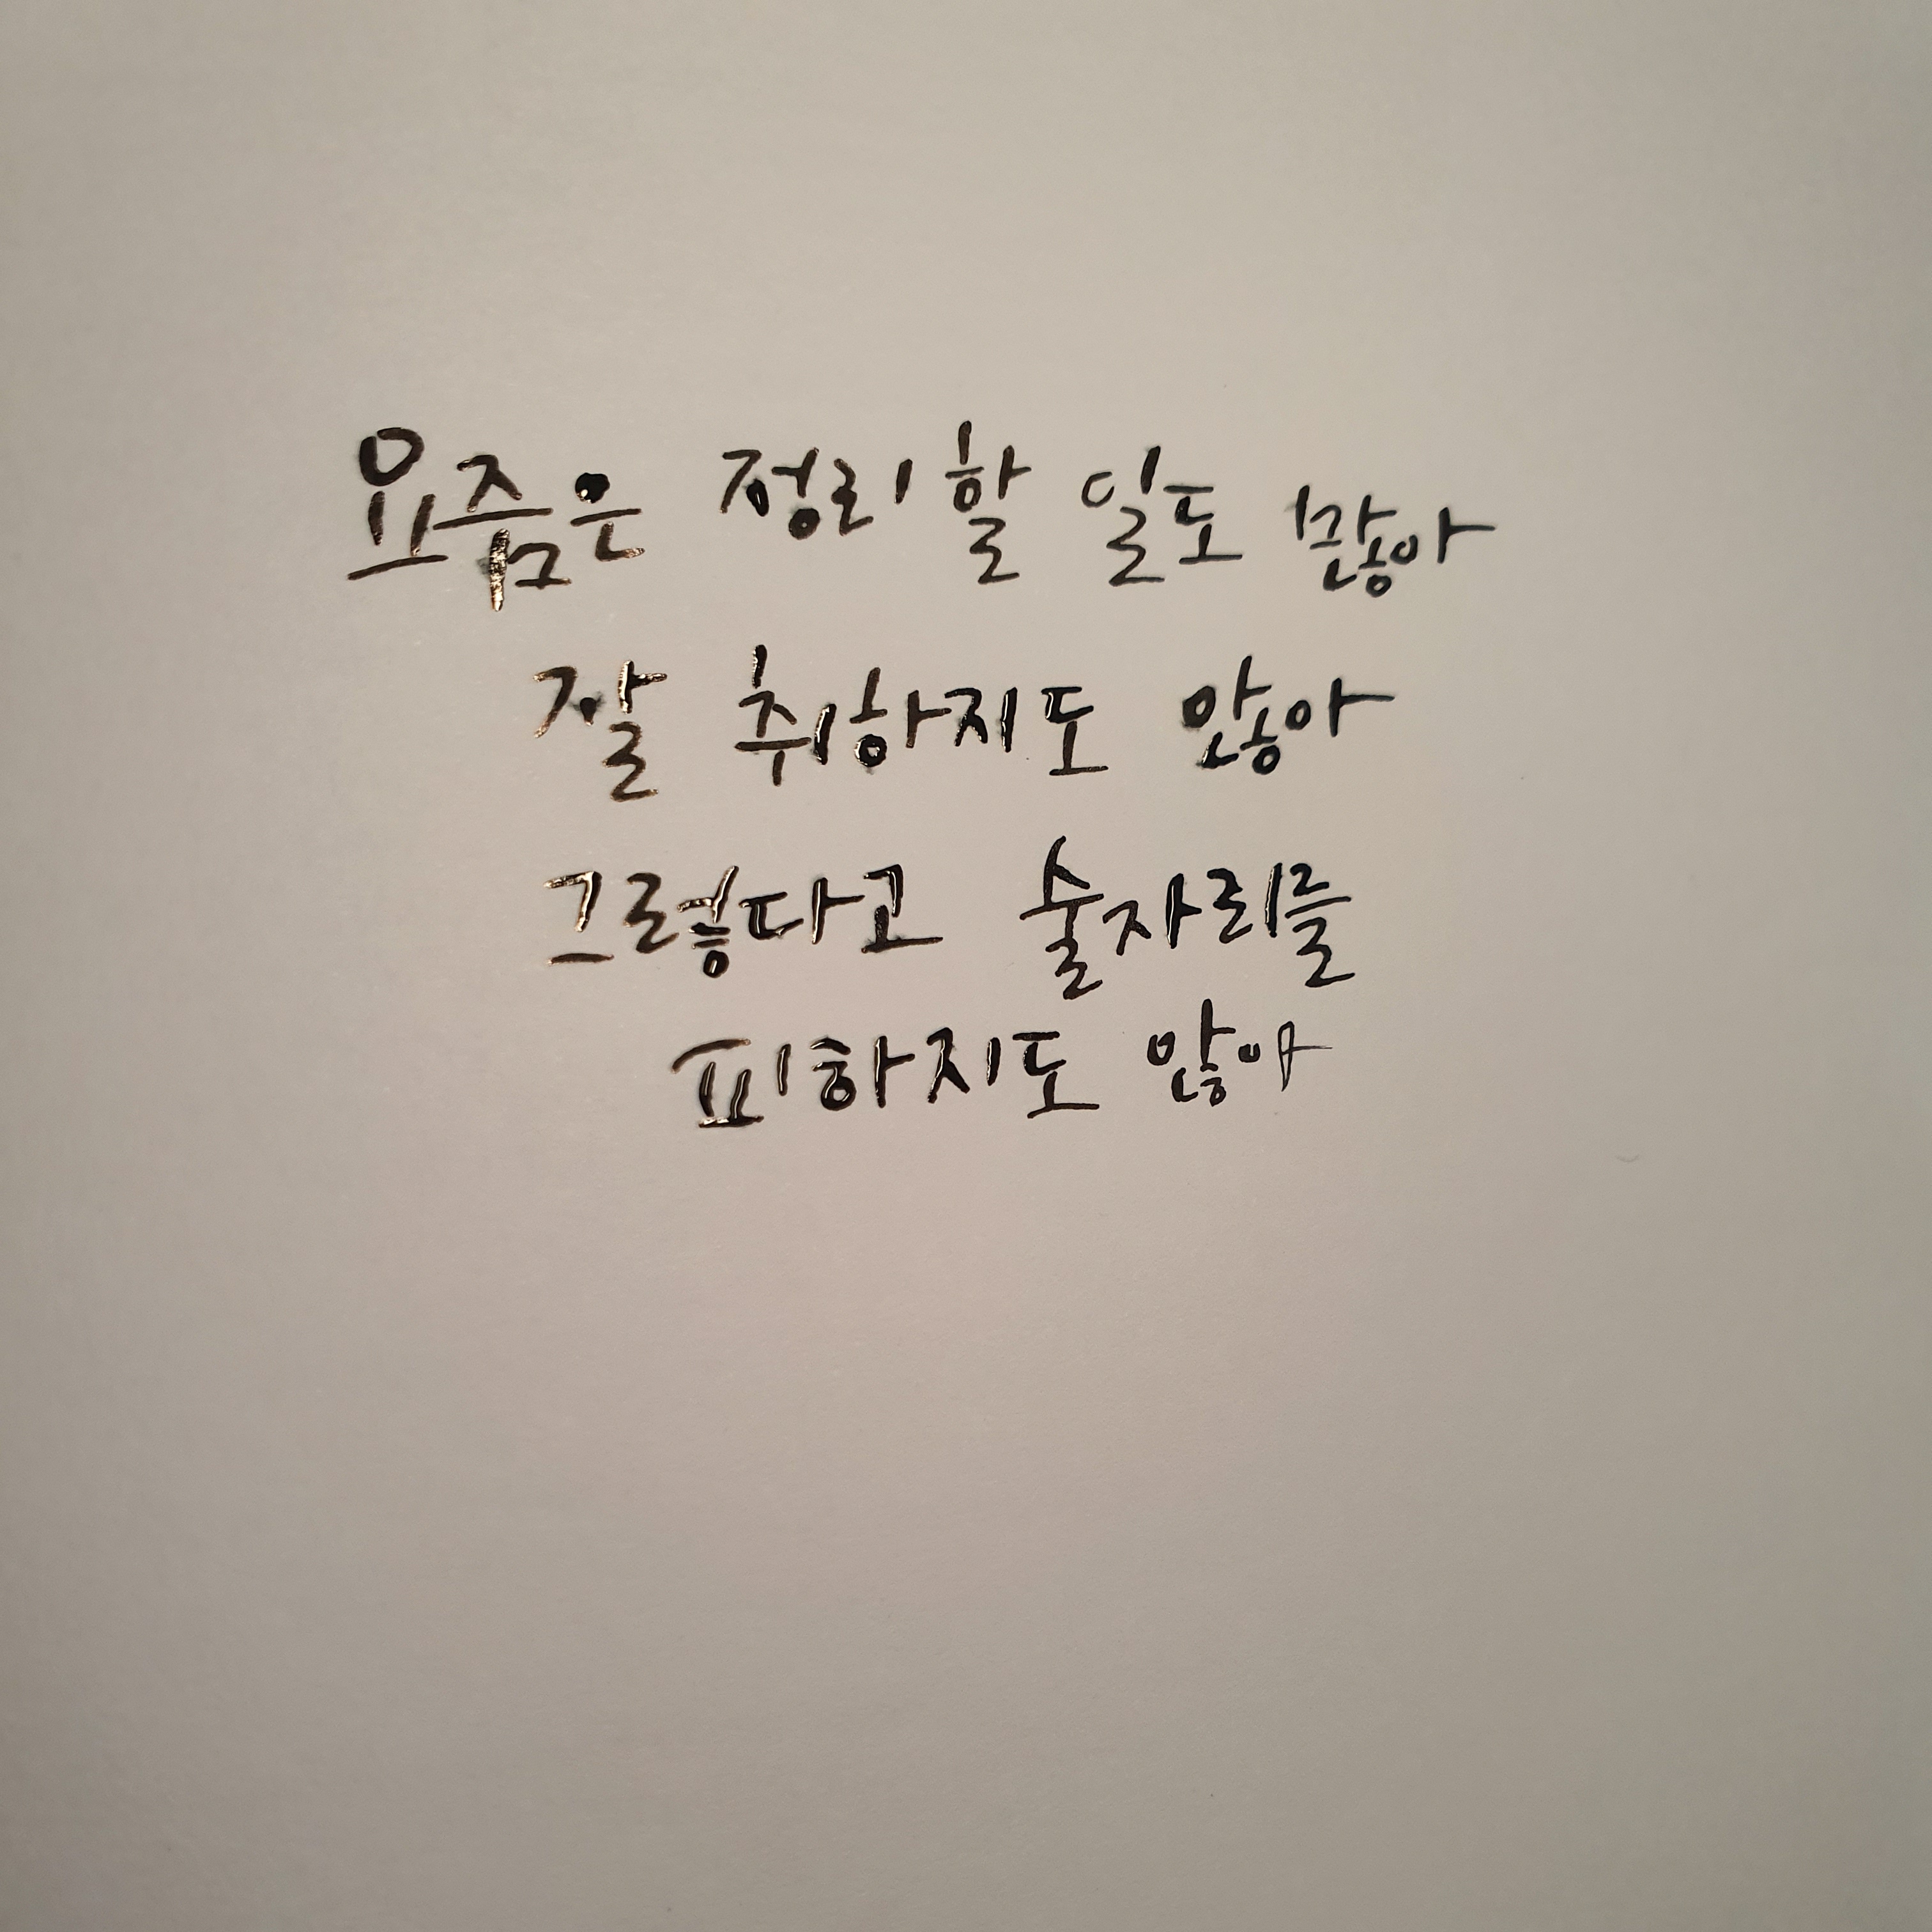 요즘은 정리할 일도 많아
잘 취하지도 않아
그렇다고 술자리를
피하지도 않아